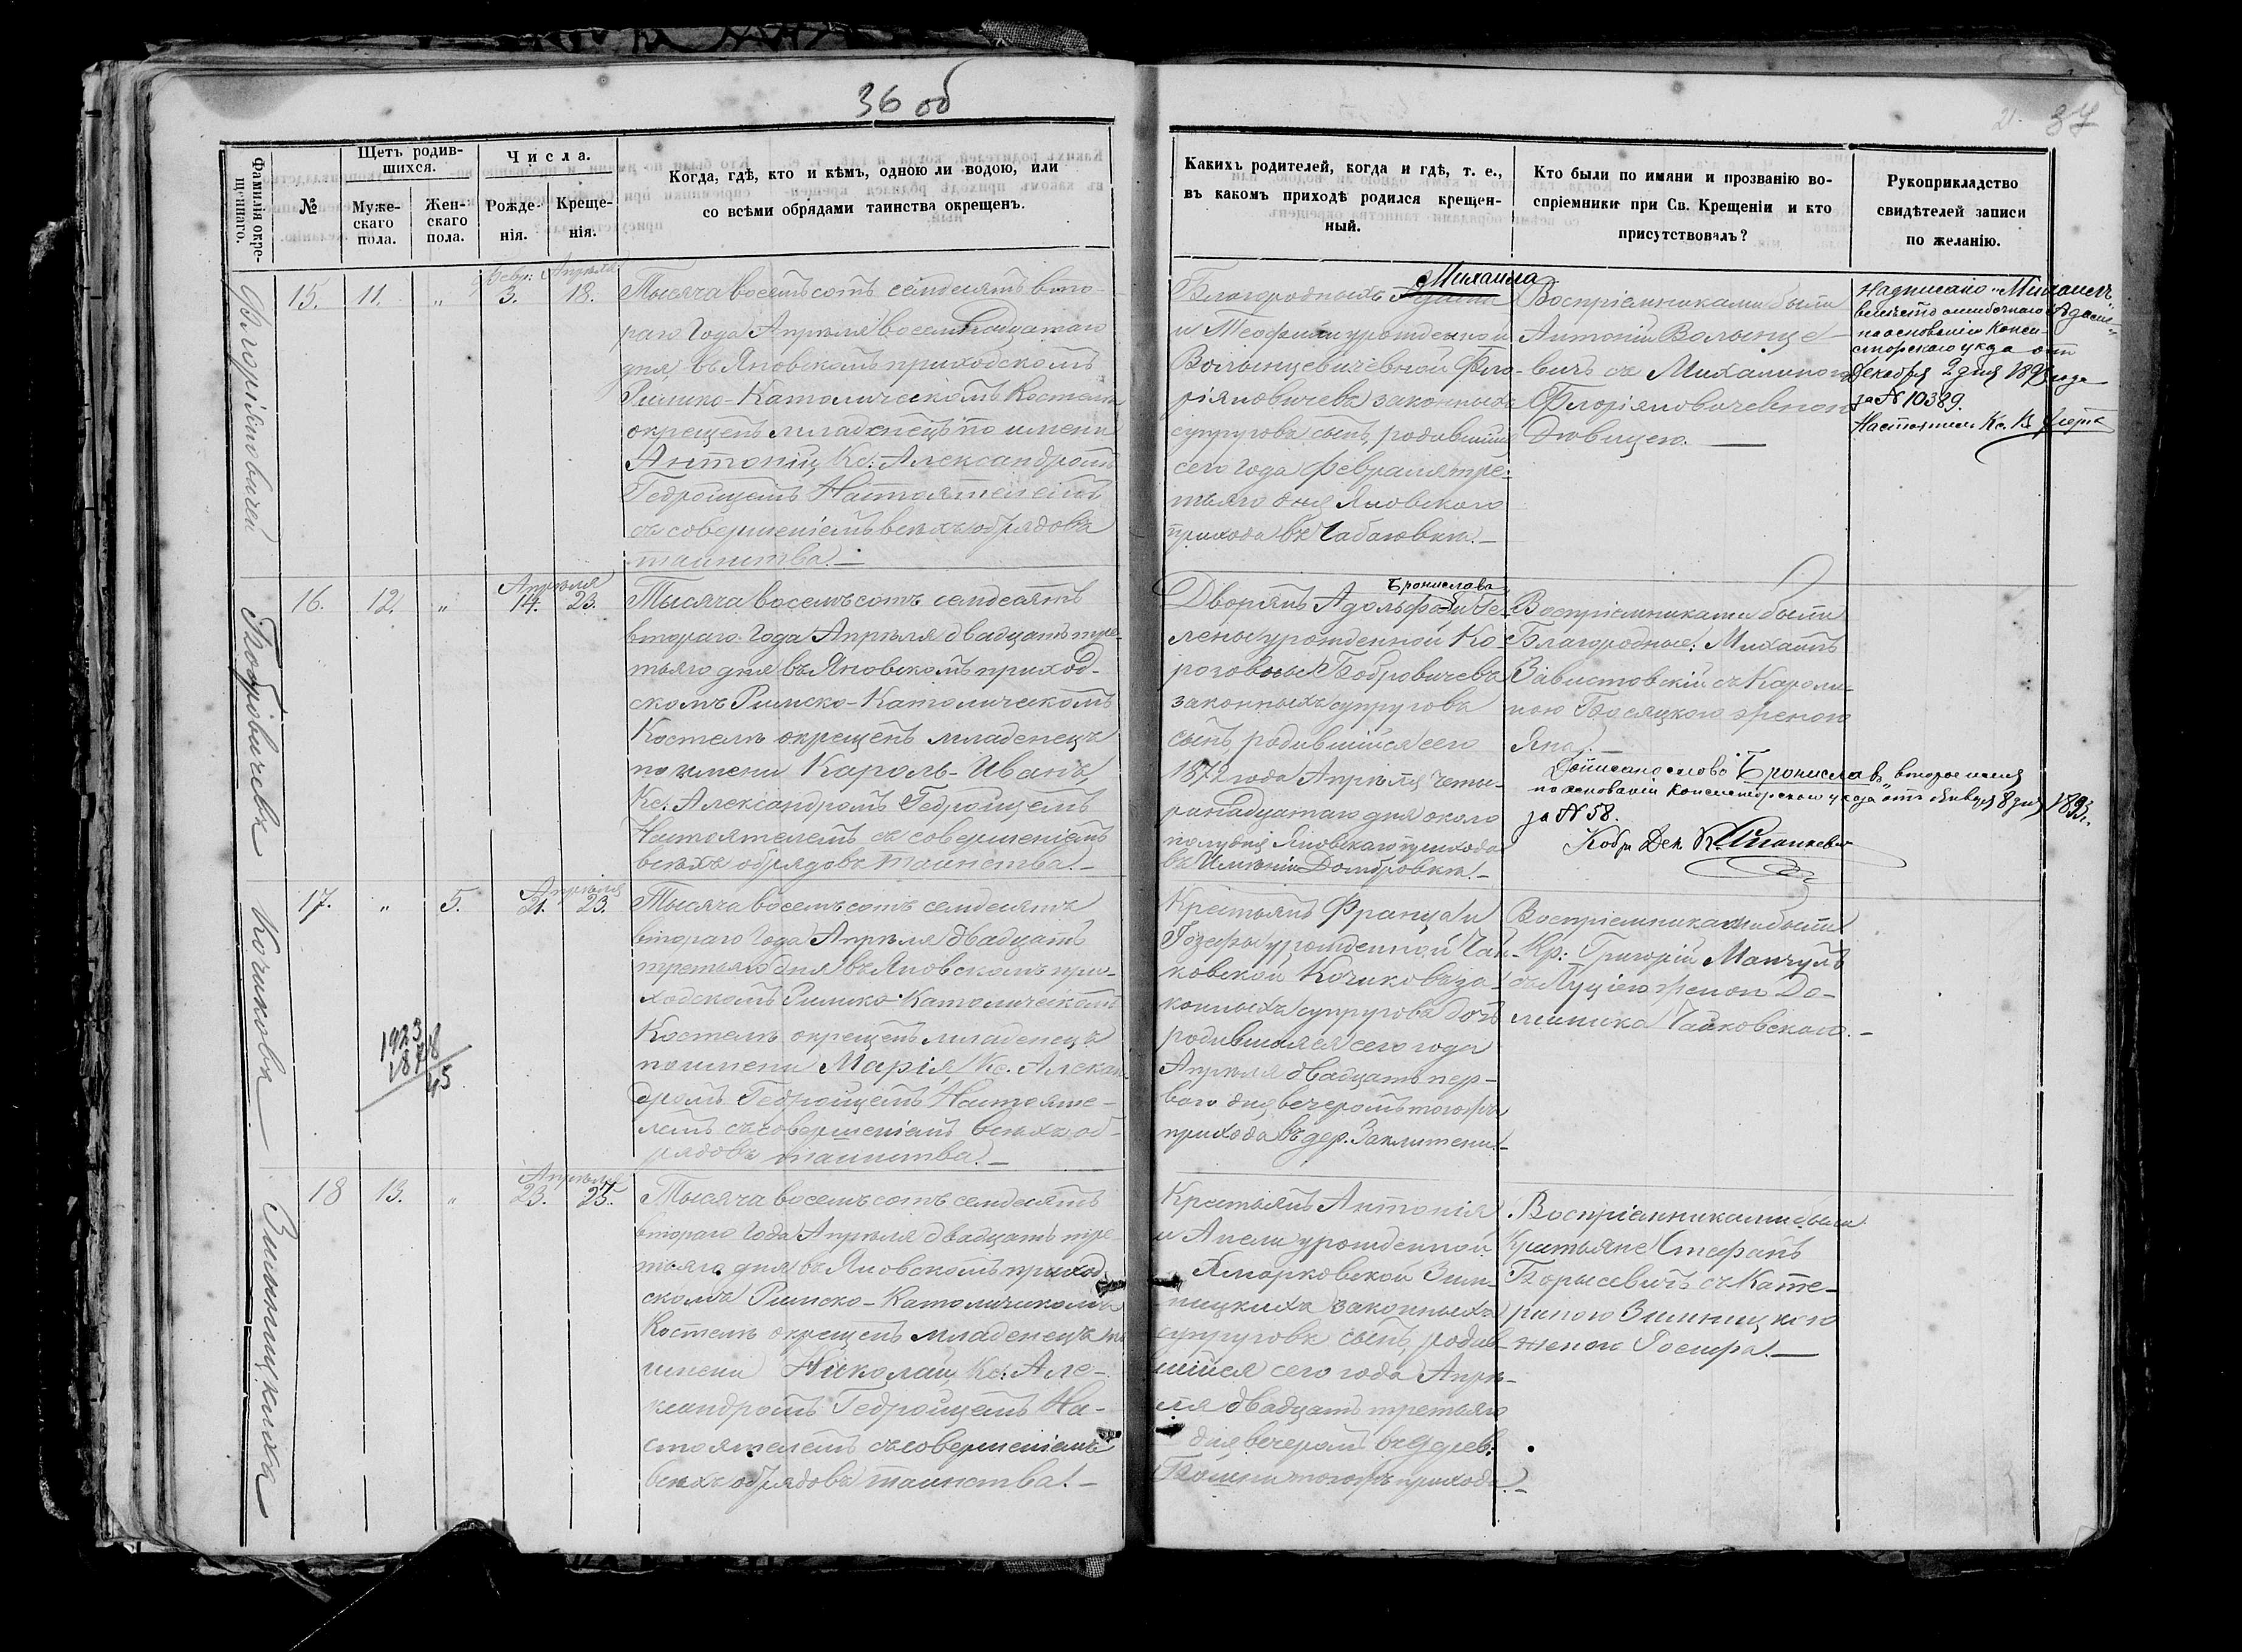 36 об
Фамилія окре-
щеннаго.
№
Щетъ родив-
шихся.
Муже-
скаго
пола.
Жен-
скаго
пола.
Числа.
Рожде-
нія.
Креще-
нія.
Когда, гдѣ, кто и кѣмъ, одною ли водою, или
со всѣми обрядами таинства окрещенъ.
15.
11.
„
Февр:
3.
Апрѣля
18.
Тысяча восемьсотъ семдесятъ вто-
раго года Апрѣля восемнадцатаго
дня въ Яновскомъ приходскомъ
Римско-Католическомъ Костелѣ
окрещенъ младенецъ по имени
Антоній, Кс: Александромъ
Гедройцемъ Настоятелемъ
съ совершеніемъ всѣхъ обрядовъ
таинства. —
Бобровичевъ
16.
12.
„
Апрѣля
14. 23.
Тысяча восемьсотъ семдесятъ
втораго года Апрѣля двадцать тре-
тьяго дня въ Яновскомъ приход-
скомъ Римско-Католическомъ
Костелѣ окрещенъ младенецъ
по имени Кароль-Иванъ,
Кс: Александромъ Гедройцемъ
Настоятелемъ съ совершеніемъ
всѣхъ обрядовъ таинства. —
Кочиковъ
17.
„
5.
Апрѣля
21. 23.
Тысяча восемьсотъ семдесятъ
втораго года Апрѣля двадцать
третьяго дня въ Яновскомъ при-
ходскомъ Римско-Католическомъ
Костелѣ окрещенъ младенецъ
по имени Марія, Кс. Алексан-
дромъ Гедройцемъ Настояте-
лемъ съ совершеніемъ всѣхъ об-
рядовъ таинства. —
1923
1878
45
Зимницкихъ
18
13.
„
Апрѣля
23. 23.
Тысяча восемьсотъ семдесятъ
втораго года Апрѣля двадцать тре-
тьяго дня въ Яновскомъ приход-
скомъ Римско-Католическомъ
Костелѣ окрещенъ младенецъ по
имени Николай, Кс: Але-
ксандромъ Гедройцемъ На-
стоятелемъ съ совершеніемъ
всѣхъ обрядовъ таинства. —
21. 37
Какихъ родителей, когда и гдѣ, т. е.,
въ какомъ приходѣ родился крещен-
ный.
Кто были по имяни и прозванію во-
спріемники при Св. Крещеніи и кто
присутствовалъ?
Рукоприкладство
свидѣтелей записи
по желанію.
Михаила
Благородныхъ Адама
и Теофили урожденной
Волынцевичевной Фло-
ріяновичевъ законныхъ
супруговъ сынъ, родившійся
сего года Февраля тре-
тьяго дня Яновскаго
прихода въ Чабаювкѣ. —
Воспріемниками были
Антоній Волынце-
вичъ съ Михалиною
Флоріяновичевною
Дювицею. —
Надписано „Михаилъ
вмѣсто ошибочнаго „Адамъ“
на основаніи Конси-
сторскаго указа отъ
Декабря 2 дня
за № 10389.
Бронислава
Дворянъ Адольфа и Ге-
лены урожденной Ко-
роговны Бобровичевъ
законныхъ супруговъ
сынъ, родившійся сего
1872 года Апрѣля четы-
рнадцатаго дня около
полудня Яновскаго прихода
въ Имѣніи Домбровкѣ. —
Воспріемниками были
Благородные: Михаилъ
Завистовскій съ Кароли-
ною женою
Яна. —
Дописано слово „Бронислав“, второе имя
на основаніи Консисторскаго указа отъ Января 8 дня 1893 г.
за № 58.
Кобр. Дек.
Крестьянъ Франца и
Іозефы урожденной Чай-
ковской Кочиковъ за-
конныхъ супруговъ дочь
родившаяся сего года
Апрѣля двадцать пер-
ваго дня вечеромъ тогожъ
прихода въ дер.
Воспріемниками были
Кр: Григорій Манчулъ
съ Луціею женою До-
миника Чайковскаго. —
Крестьянъ Антонія
и Анели урожденной
Яморковской Зим-
ницкихъ законныхъ
супруговъ сынъ, родив-
шійся сего года Апрѣ-
ля двадцать третьяго
дня вечеромъ въ дерев:
тогожъ прихода. —
Воспріемниками были
Крестьяне Стефанъ
Борысевичъ съ Кате-
риною Зимницкою
женою Іосифа. —